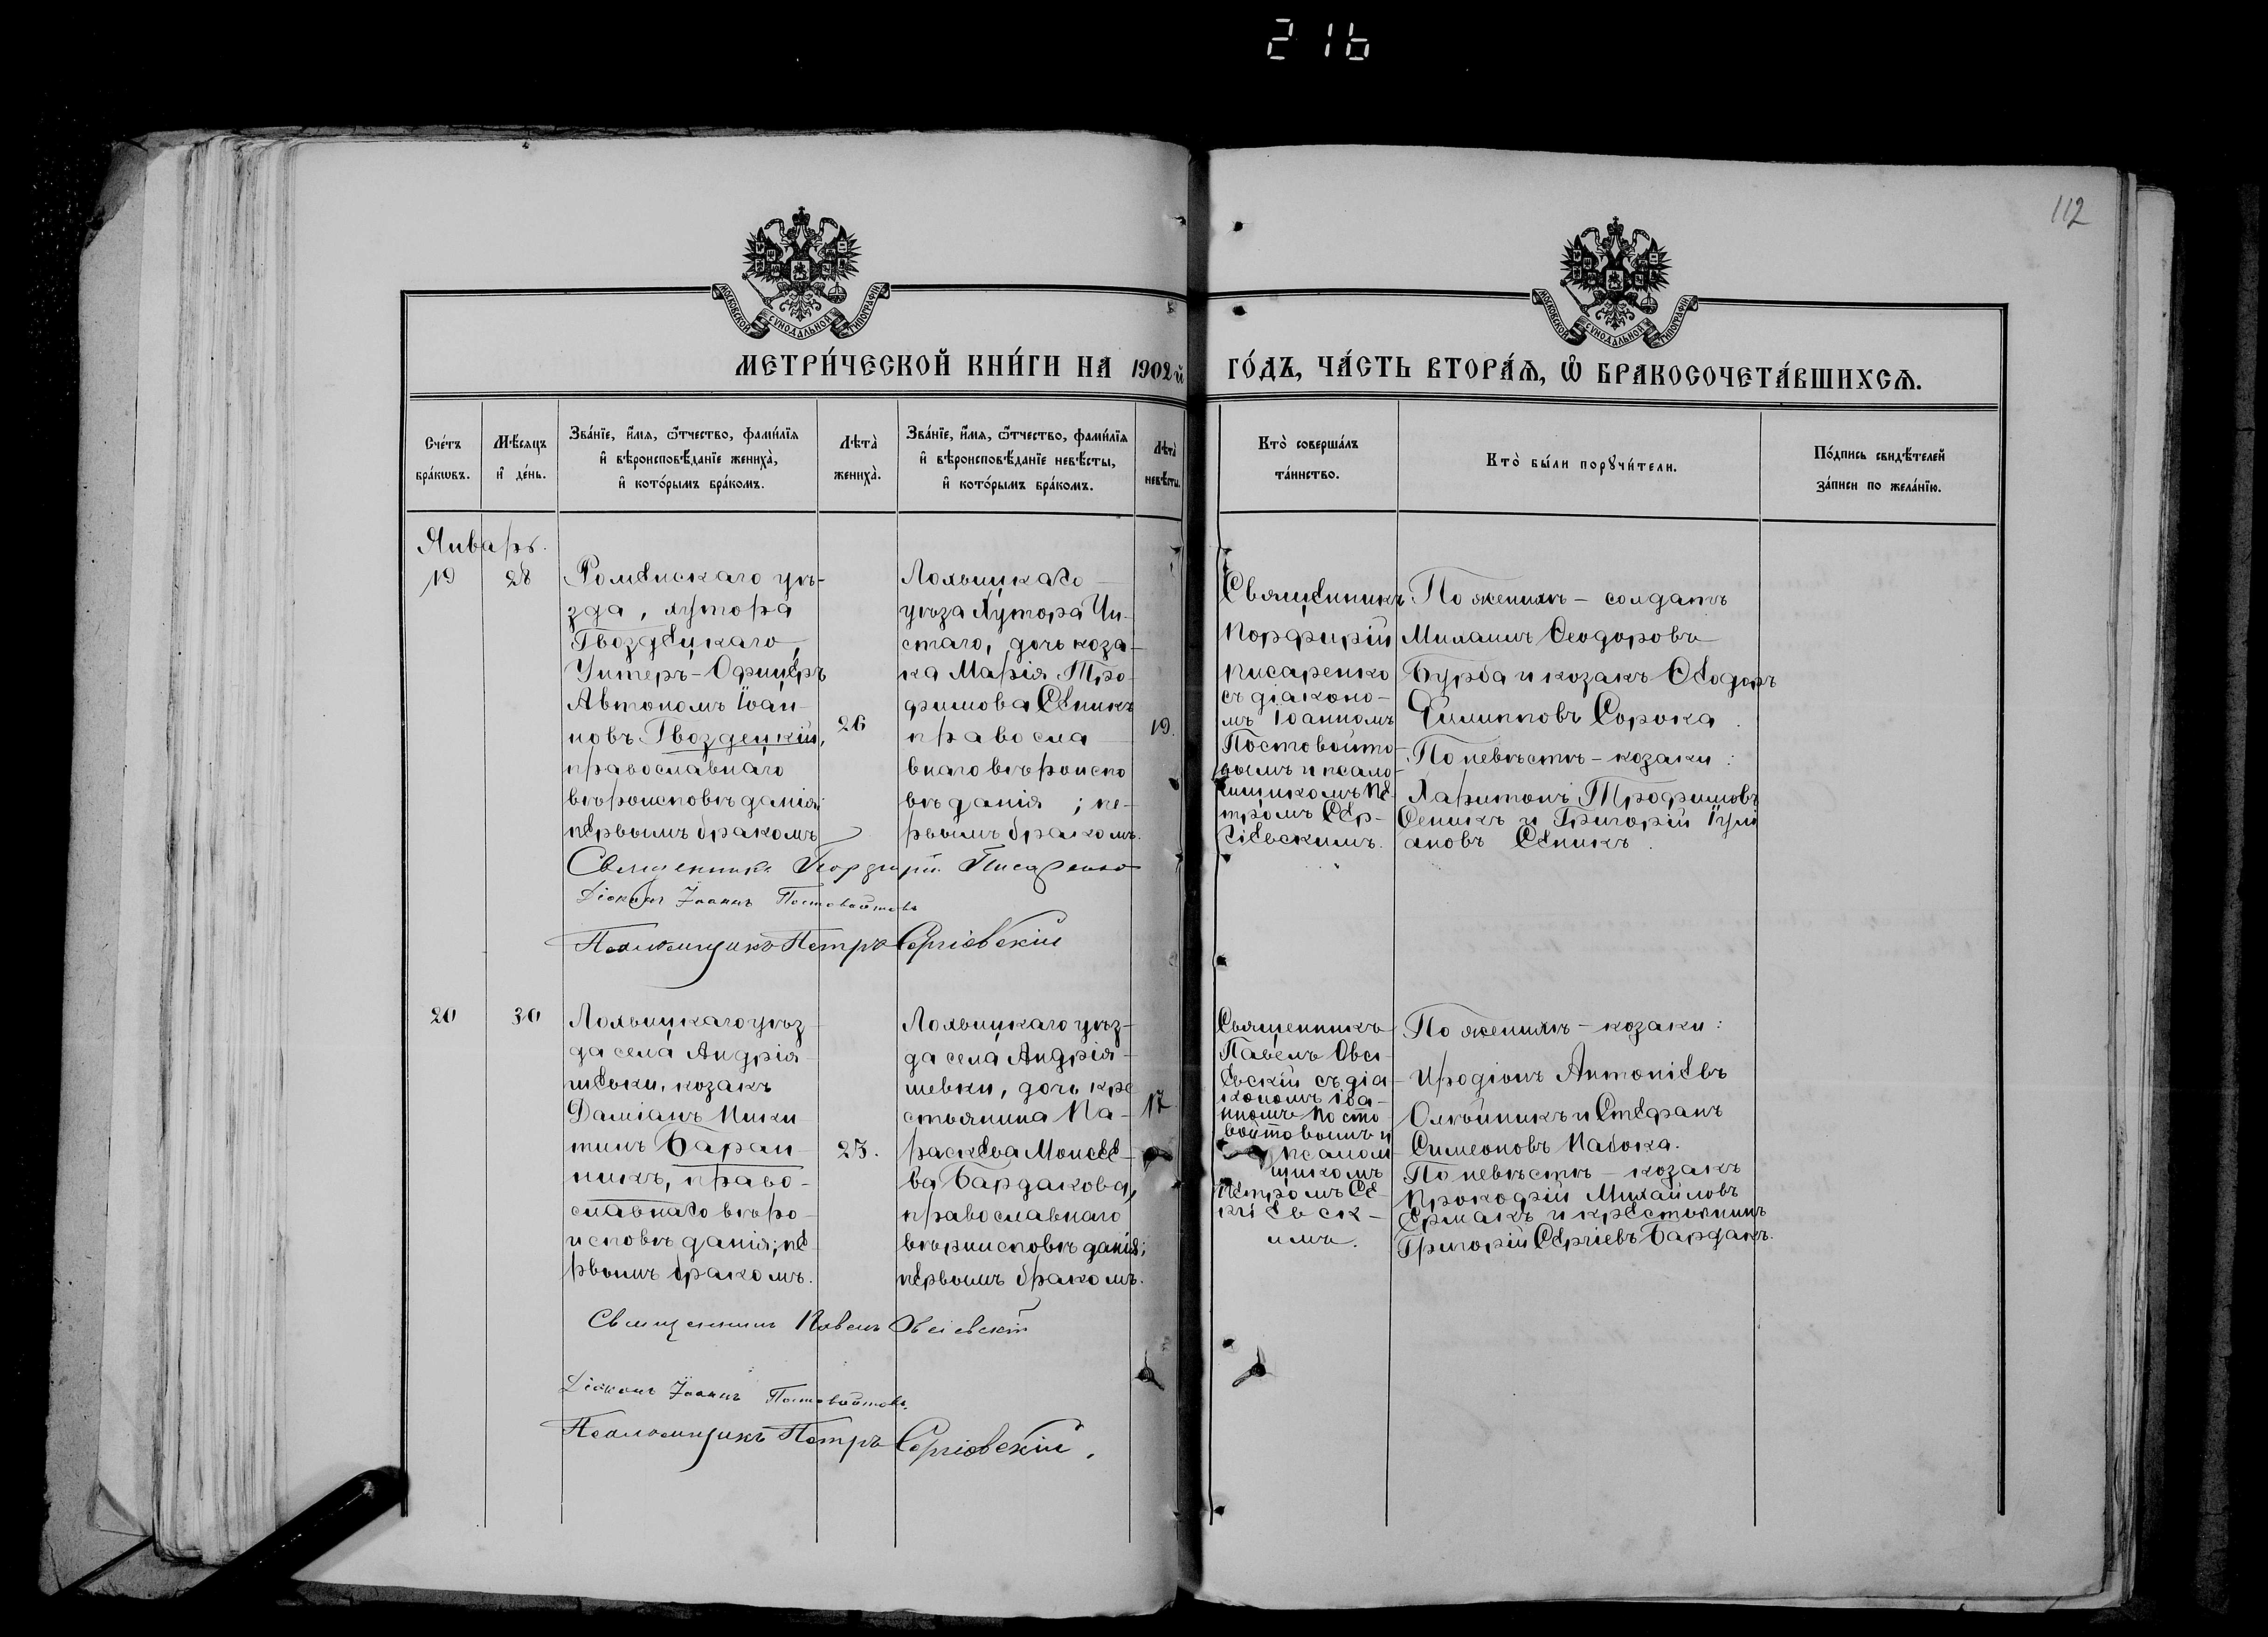 216
112
МОСКОВСКОЙ СѴНОДАЛЬНОЙ ТИПОГРАФІИ
МОСКОВСКОЙ СѴНОДАЛЬНОЙ ТИПОГРАФІИ
МЕТРИ́ЧЕСКОЙ КНИ́ГИ НА 1902й ГО́ДЪ, ЧА́СТЬ ВТОРА́Ѧ, Ѡ҆ БРАКОСОЧЕТА́ВШИХСѦ.
Сче́тъ
бра́кѡвъ.
Мѣ́сяцъ
и҆ де́нь.
Зва́нїе, и҆́мѧ, ѻ҆́тчество, фами́лїѧ
и҆ вѣроисповѣ́данїе жениха̀,
и҆ кото́рымъ бра́комъ.
Лѣта̀
жениха̀.
Зва́нїе, и҆́мѧ, ѻ҆́тчество, фами́лїѧ
и҆ вѣроисповѣ́данїе невѣ́сты,
и҆ кото́рымъ бра́комъ.
Лѣта̀
невѣ́сты.
Кто̀ соверша́лъ
та́инство.
Кто̀ бы́ли порꙋчи́тели.
По́дпись свидѣ́телей
за́писи по жела́нїю.
Январь.
19
28
Роменскаго уѣ-
зда, хутора
Гвоздецкаго,
Унтеръ-Офицеръ
Автономъ Іоан-
новъ Гвоздецкій,
православнаго
вѣроисповѣданія;
первымъ бракомъ
26
Лохвицкаго
уѣзда Хутора Чи-
стаго, дочь коза-
ка Марія Тро-
фимова Сѣникъ
правосла
внаго вѣроиспо
вѣданія; пе-
рвымъ бракомъ.
19.
Священникъ
Порфирій
Писаренко
съ діаконо-
мъ Іоанномъ
Постовойто-
вымъ и псало-
мщикомъ Пе-
тромъ Сер-
гіевскимъ.
По женихѣ - солдатъ
Михаилъ Ѳеодоровъ
Бурба и козакъ Ѳеодоръ
Филипповъ Сорока.
По невѣстѣ - козаки:
Харитонъ Трофимовъ
Сеникъ и Григорій Іулі
ановъ Сеникъ.
Священникъ Порфирій Писаренко
Діаконъ Іоаннъ Постовойтовъ
Псаломщикъ Петръ Сергіевскій
20
30
Лохвицкаго уѣз-
да села Андрія-
шевки, козакъ
Даміанъ Ники
тинъ Баран-
никъ, право-
славнаго вѣро-
исповѣданія; пе
рвымъ бракомъ.
23.
Лохвицкаго уѣз-
да села Андрія-
шевки, дочь кре
стьянина Па-
раскева Моисее-
ва Бардакова,
православнаго
вѣриисповѣданія;
первымъ бракомъ.
17
Священникъ
Павелъ Овсі-
евскій съ діа-
кономъ Іоа-
нномъ Посто-
войтовымъ и
псалом
щикомъ
Петромъ Се-
ргіевск-
имъ.
По женихѣ - козаки:
Иродіонъ Антоніевъ
Олѣйникъ и Стефанъ
Симеоновъ Набока.
По невѣстѣ - козакъ
Прокофій Михайловъ
Ермакъ и крестьянинъ
Григорій Сергіевъ Бардакъ.
Священникъ Павелъ Овсіевскій
Діаконъ Іоаннъ Постовойтовъ.
Псаломщикъ Петръ Сергіевскій.